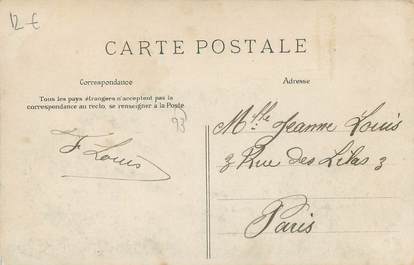 12 €
CARTE POSTALE
Correspondance
Adresse
Tous les pays étrangers n'acceptent pas la
correspondance au recto, se renseigner à la Poste
93
F Louis
Mlle Jeanne Louis
3 Rue des Lilas 3
Paris